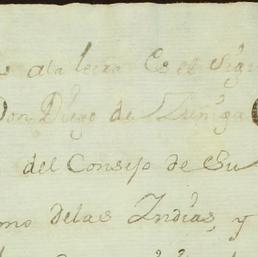 a la letra Es el sigui
Don Diego de Zuniga
del Consejo de Su
mo delas Indias, y